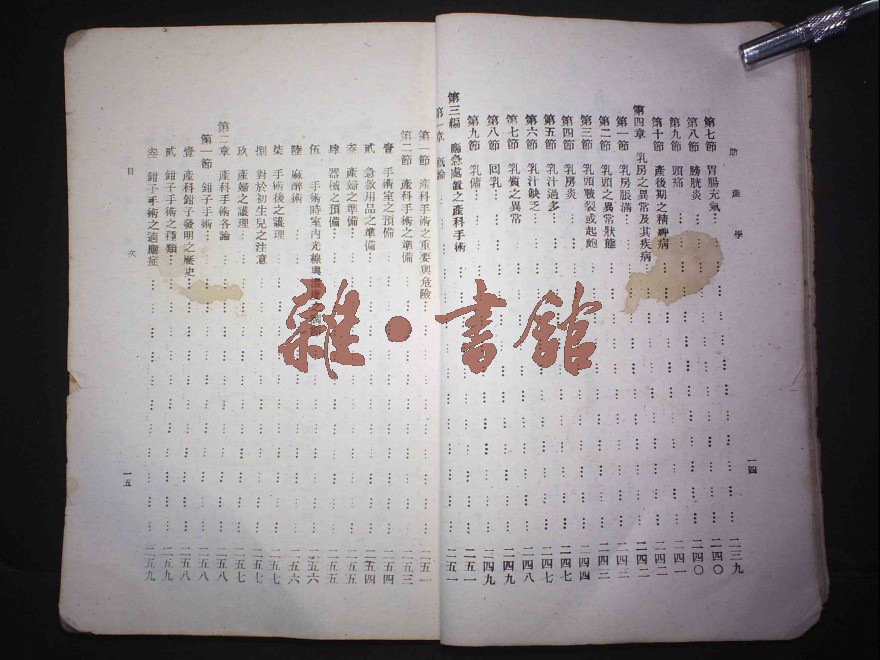 助產學
第七節 胃腸充氣 二三九
第八節 膀胱炎 二四〇
第九節 頭痛 二四〇
第十節 產後期之精神病 二四一
第四章 乳房之異常及其疾病 二四二
第一節 乳房脹滿 二四二
第二節 乳頭之異常狀態 二四三
第三節 乳頭皸裂或起皰 二四三
第四節 乳房炎 二四四
第五節 乳汁過多 二四七
第六節 乳汁缺乏 二四七
第七節 乳質之異常 二四八
第八節 回乳 二四九
第九節 乳傭 二四九
第三編 應急處置之產科手術 二五一
第一章 概論 二五一
一四
第一節 產科手術之重要與危險 二五一
第二節 產科手術之準備 二五三
壹 手術室之預備 二五四
貳 急救用品之準備 二五四
叁 產婦之準備 二五五
肆 器械之預備 二五五
伍 手術時室內光線與溫度 二五六
陸 麻醉術 二五六
柒 手術後之護理 二五七
捌 對於初生兒之注意 二五七
玖 產婦之護理 二五七
第二章 產科手術各論 二五八
第一節 鉗子手術 二五八
壹 產科鉗子發明之歷史 二五八
貳 鉗子手術之種類 二五九
叁 鉗子手術之適應症 二五九
目次
一五
雜·書館